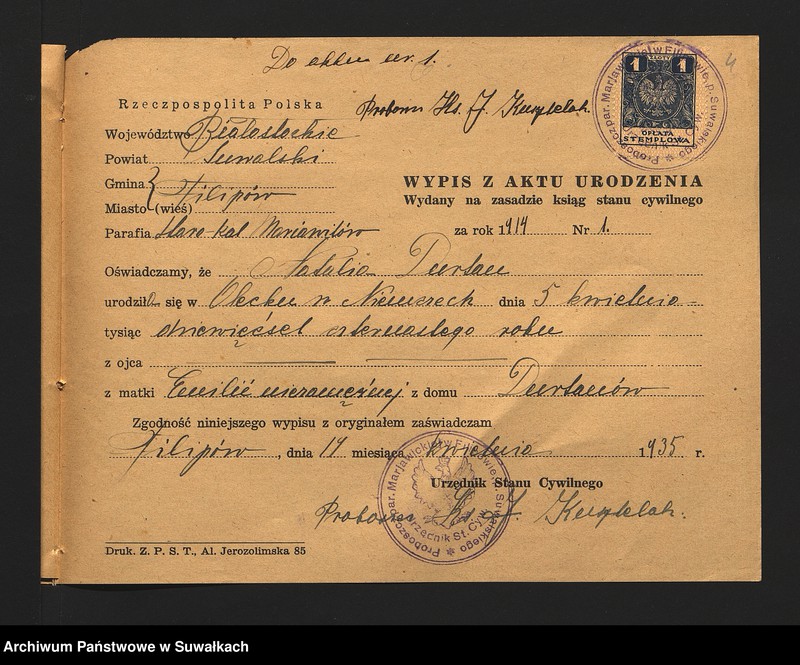 Do aktu nr. 1.
4
Rzeczpospolita Polska
Proboszcz Ks. J.
Województwo Białostockie
Powiat Suwalski
Gmina
Miasto (wieś) Filipów
Parafia Staro-kat Mariawitów
1 ZŁOTY 1
OPŁATA
STEMPLOWA
Proboszcz par. Marjawickiej w Filipowie, p. Suwalskiego
WYPIS Z AKTU URODZENIA
Wydany na zasadzie ksiąg stanu cywilnego
za rok 1914 Nr 1.
Oświadczamy, że Natalia Durtan
urodziła się w Olecku w Niemczech dnia 5 kwietnia
tysiąc dziewięćset czternastego roku
z ojca
z matki Emilii niezamężnej z domu Durtanów
Zgodność niniejszego wypisu z oryginałem zaświadczam
Filipów, dnia 14 miesiąca kwietnia 1935 r.
Urzędnik Stanu Cywilnego
Proboszcz Ks. J.
Proboszcz par. Marjawickiej w Filipowie, p. Suwalskiego
Urzędnik St. Cyw.
Druk. Z. P. S. T., Al. Jerozolimska 85
Archiwum Państwowe w Suwałkach